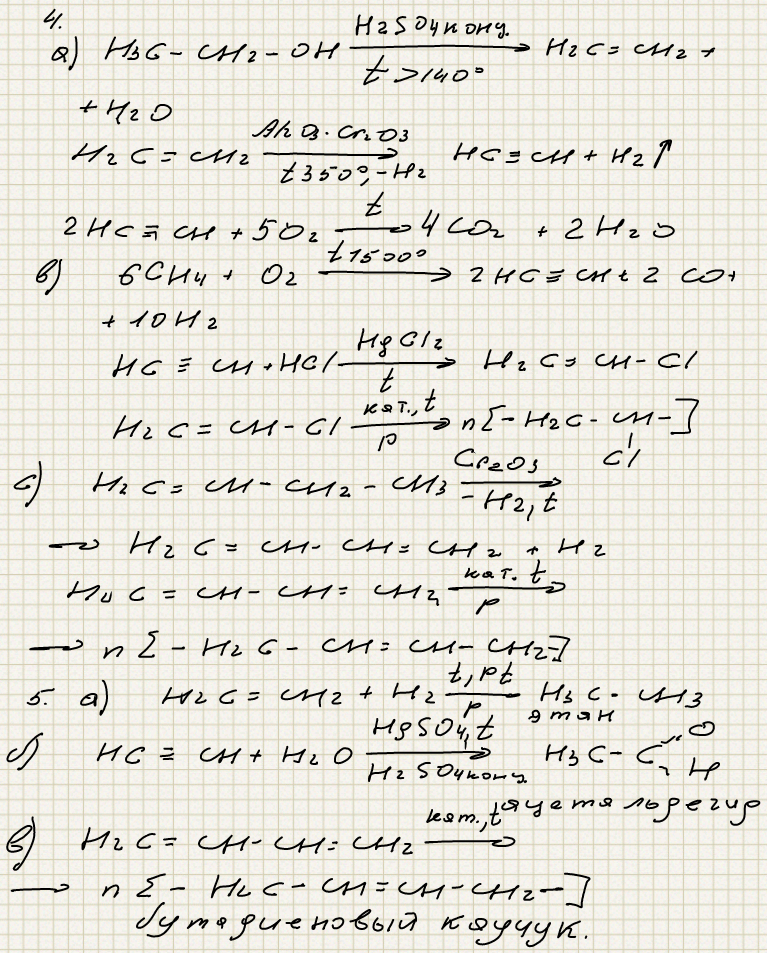 4.
а) H3C - CH2 - OH —H2SO4 конц. / t >140°→ H2C = CH2 +
+ H2O
H2C = CH2 —Al2O3·Cr2O3 / t350°, -H2→ HC ≡ CH + H2↑
2HC ≡ CH + 5O2 —t→ 4CO2 + 2H2O
в) 6CH4 + O2 —t1500°→ 2HC ≡ CH + 2CO +
+ 10H2
HC ≡ CH + HCl —HgCl2 / t→ H2C = CH - Cl
H2C = CH - Cl —кат., t / p→ n[-H2C - CH-]
Cl
с) H2C = CH - CH2 - CH3 —Cr2O3 / -H2, t→
→ H2C = CH - CH = CH2 + H2
H2C = CH - CH = CH2 —кат. t / p→
→ n[-H2C - CH = CH - CH2-]
5. а) H2C = CH2 + H2 —t, Pt / p→ H3C - CH3
этан
б) HC ≡ CH + H2O —HgSO4, t / H2SO4 конц.→ H3C - C =O H
ацетальдегид
в) H2C = CH - CH = CH2 —кат., t→
→ n[-H2C - CH = CH - CH2-]
бутадиеновый каучук.